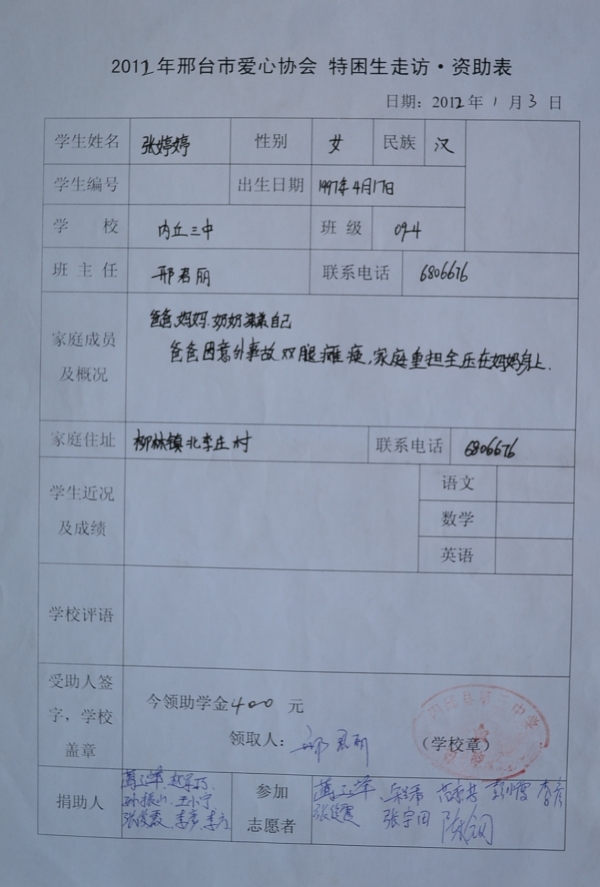 2012年邢台市爱心协会 特困生走访·资助表
日期：2012年 1月 3日
学生姓名 张婷婷 性别 女 民族 汉
学生编号 出生日期 1997年4月17日
学 校 内丘三中 班 级 09.4
班 主 任 邢君丽 联系电话 6806676
家庭成员及概况
爸爸.妈妈.奶奶 自己
爸爸因意外事故双腿瘫痪,家庭重担全压在妈妈身上.
家庭住址 柳林镇北李庄村 联系电话 6806676
学生近况及成绩
语文
数学
英语
学校评语
受助人签字，学校盖章
今领助学金400 元
领取人： （学校章）
捐助人
孙振 王小宁
参加志愿者
张宇田